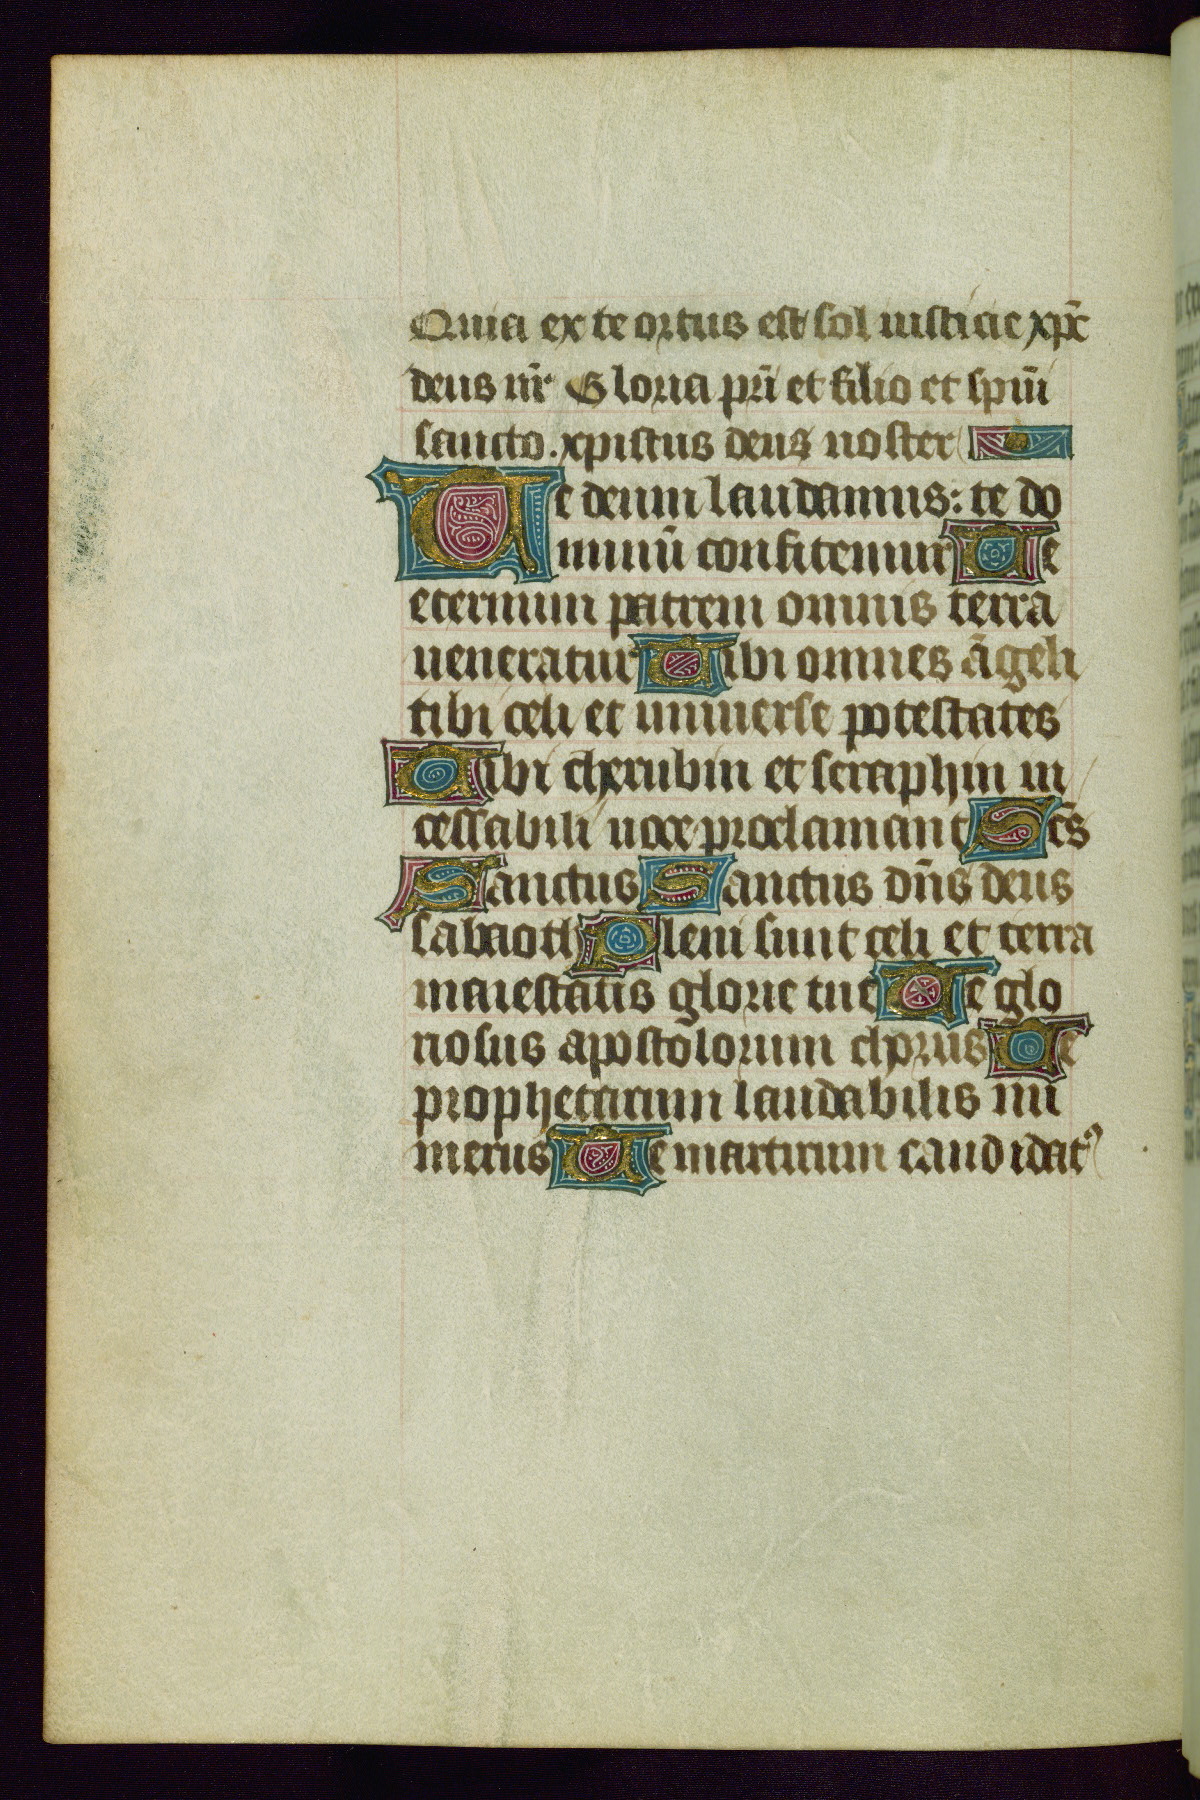 Quia ex te ortus est sol iusticie xp̄c
deus nr̄ Gloria pr̄i et filio et spūi
sancto. xpistus deus noster
Te deum laudamus: te do
minū confitemur Te
eternum patrem omnis terra
ueneratur Tibi omnes āgeli
tibi celi et uniuerse potestates
Tibi cherubin et seraphin in
cessabili uoce proclamant Sc̄s
Sanctus Sanctus dn̄s deus
sabaoth Pleni sunt celi et terra
maiestatis glorie tue Te glo
riosus apostolorum chorus Te
prophetarum laudabilis nu
merus Te martirum candidatꝰ